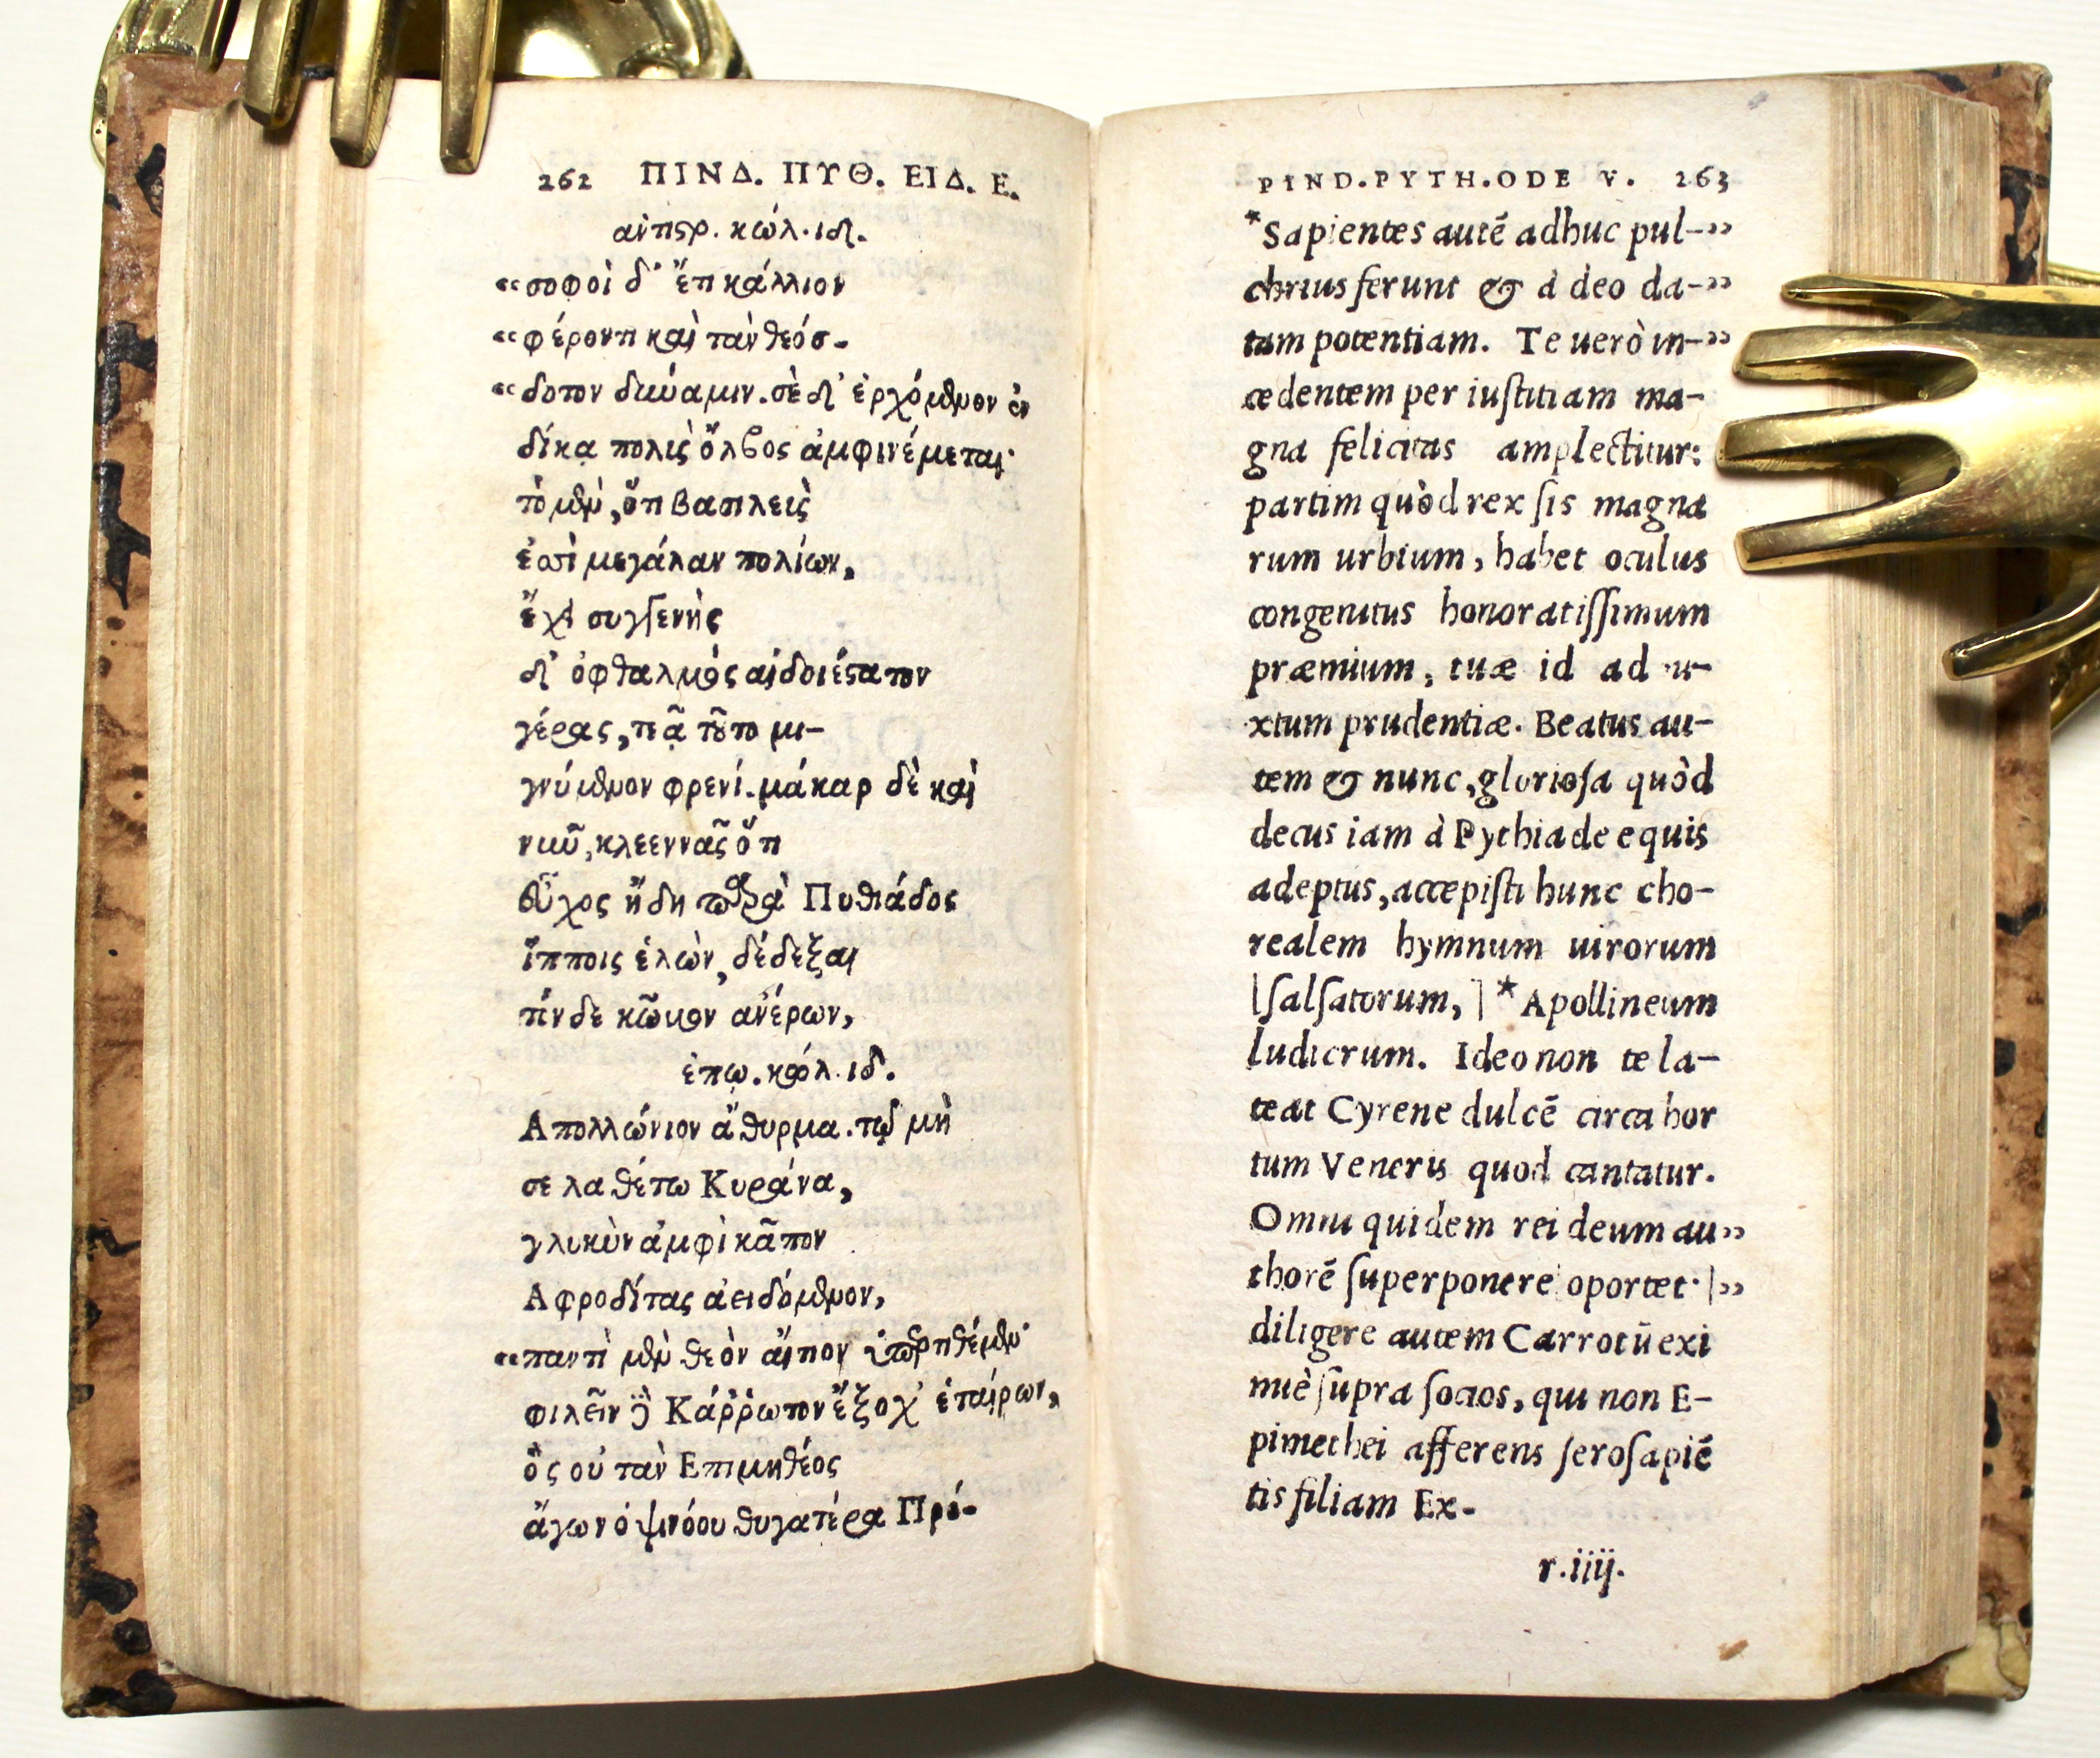 262 ΠΙΝΔ. ΠΥΘ. ΕΙΔ. Ε.
ἀντιστρ. κώλ. ιδ.
“σοφοὶ δ' ἔτι κάλλιον
“φέροντι καὶ τὰν θεόσ-
“δοτον δύναμιν. σὲ δ' ἐρχόμενον ἐν
δίκᾳ πολὺς ὄλβος ἀμφινέμεται·
τὸ μὲν, ὅτι βασιλεὺς
ἐσσὶ μεγάλαν πολίων,
ἔχει συγγενὴς
δ' ὀφθαλμὸς αἰδοιέστατον
γέρας, τεᾷ τοῦτο μι-
γνύμενον φρενί. μάκαρ δὲ καὶ
νῦν, κλεεννᾶς ὅτι
εὖχος ἤδη παρὰ Πυθιάδος
ἵπποις ἑλὼν, δέδεξαι
τόνδε κῶμον ἀνέρων,
ἐπῳ. κώλ. ιδ.
Απολλώνιον ἄθυρμα. τῷ μὴ
σε λαθέτω Κυράνα,
γλυκὺν ἀμφὶ κᾶπον
Αφροδίτας ἀειδόμενον,
“παντὶ μὲν θεὸν αἴτιον ὑπερτιθέμεν·
φιλεῖν δὲ Κάῤῥωτον ἔξοχ' ἑταίρων,
ὃς οὐ τὰν Επιμηθέος
ἄγων ὀψινόου θυγατέρα Πρό-
PIND.PYTH.ODE V. 263
*Sapientes autē adhuc pul-”
chrius ferunt & à deo da-”
tam potentiam. Te uerò in-”
cedentem per iuſtitiam ma-
gna felicitas amplectitur:
partim quòd rex ſis magna
rum urbium, habet oculus
congenitus honoratiſſimum
præmium, tuæ id ad
xtum prudentiæ. Beatus au-
tem & nunc, glorioſa quòd
decus iam à Pythiade equis
adeptus, accepiſti hunc cho-
realem hymnum uirorum
|ſalſatorum,] *Apollineum
ludicrum. Ideo non te la-
teat Cyrene dulcē circa hor
tum Veneris quod cantatur.
Omni quidem rei deum au”
thorē ſuperponere oportet·|”
diligere autem Carrotū exi
miè ſupra ſocios, qui non E-
pimethei afferens ſeroſapiē
tis filiam Ex-
r.iiij.